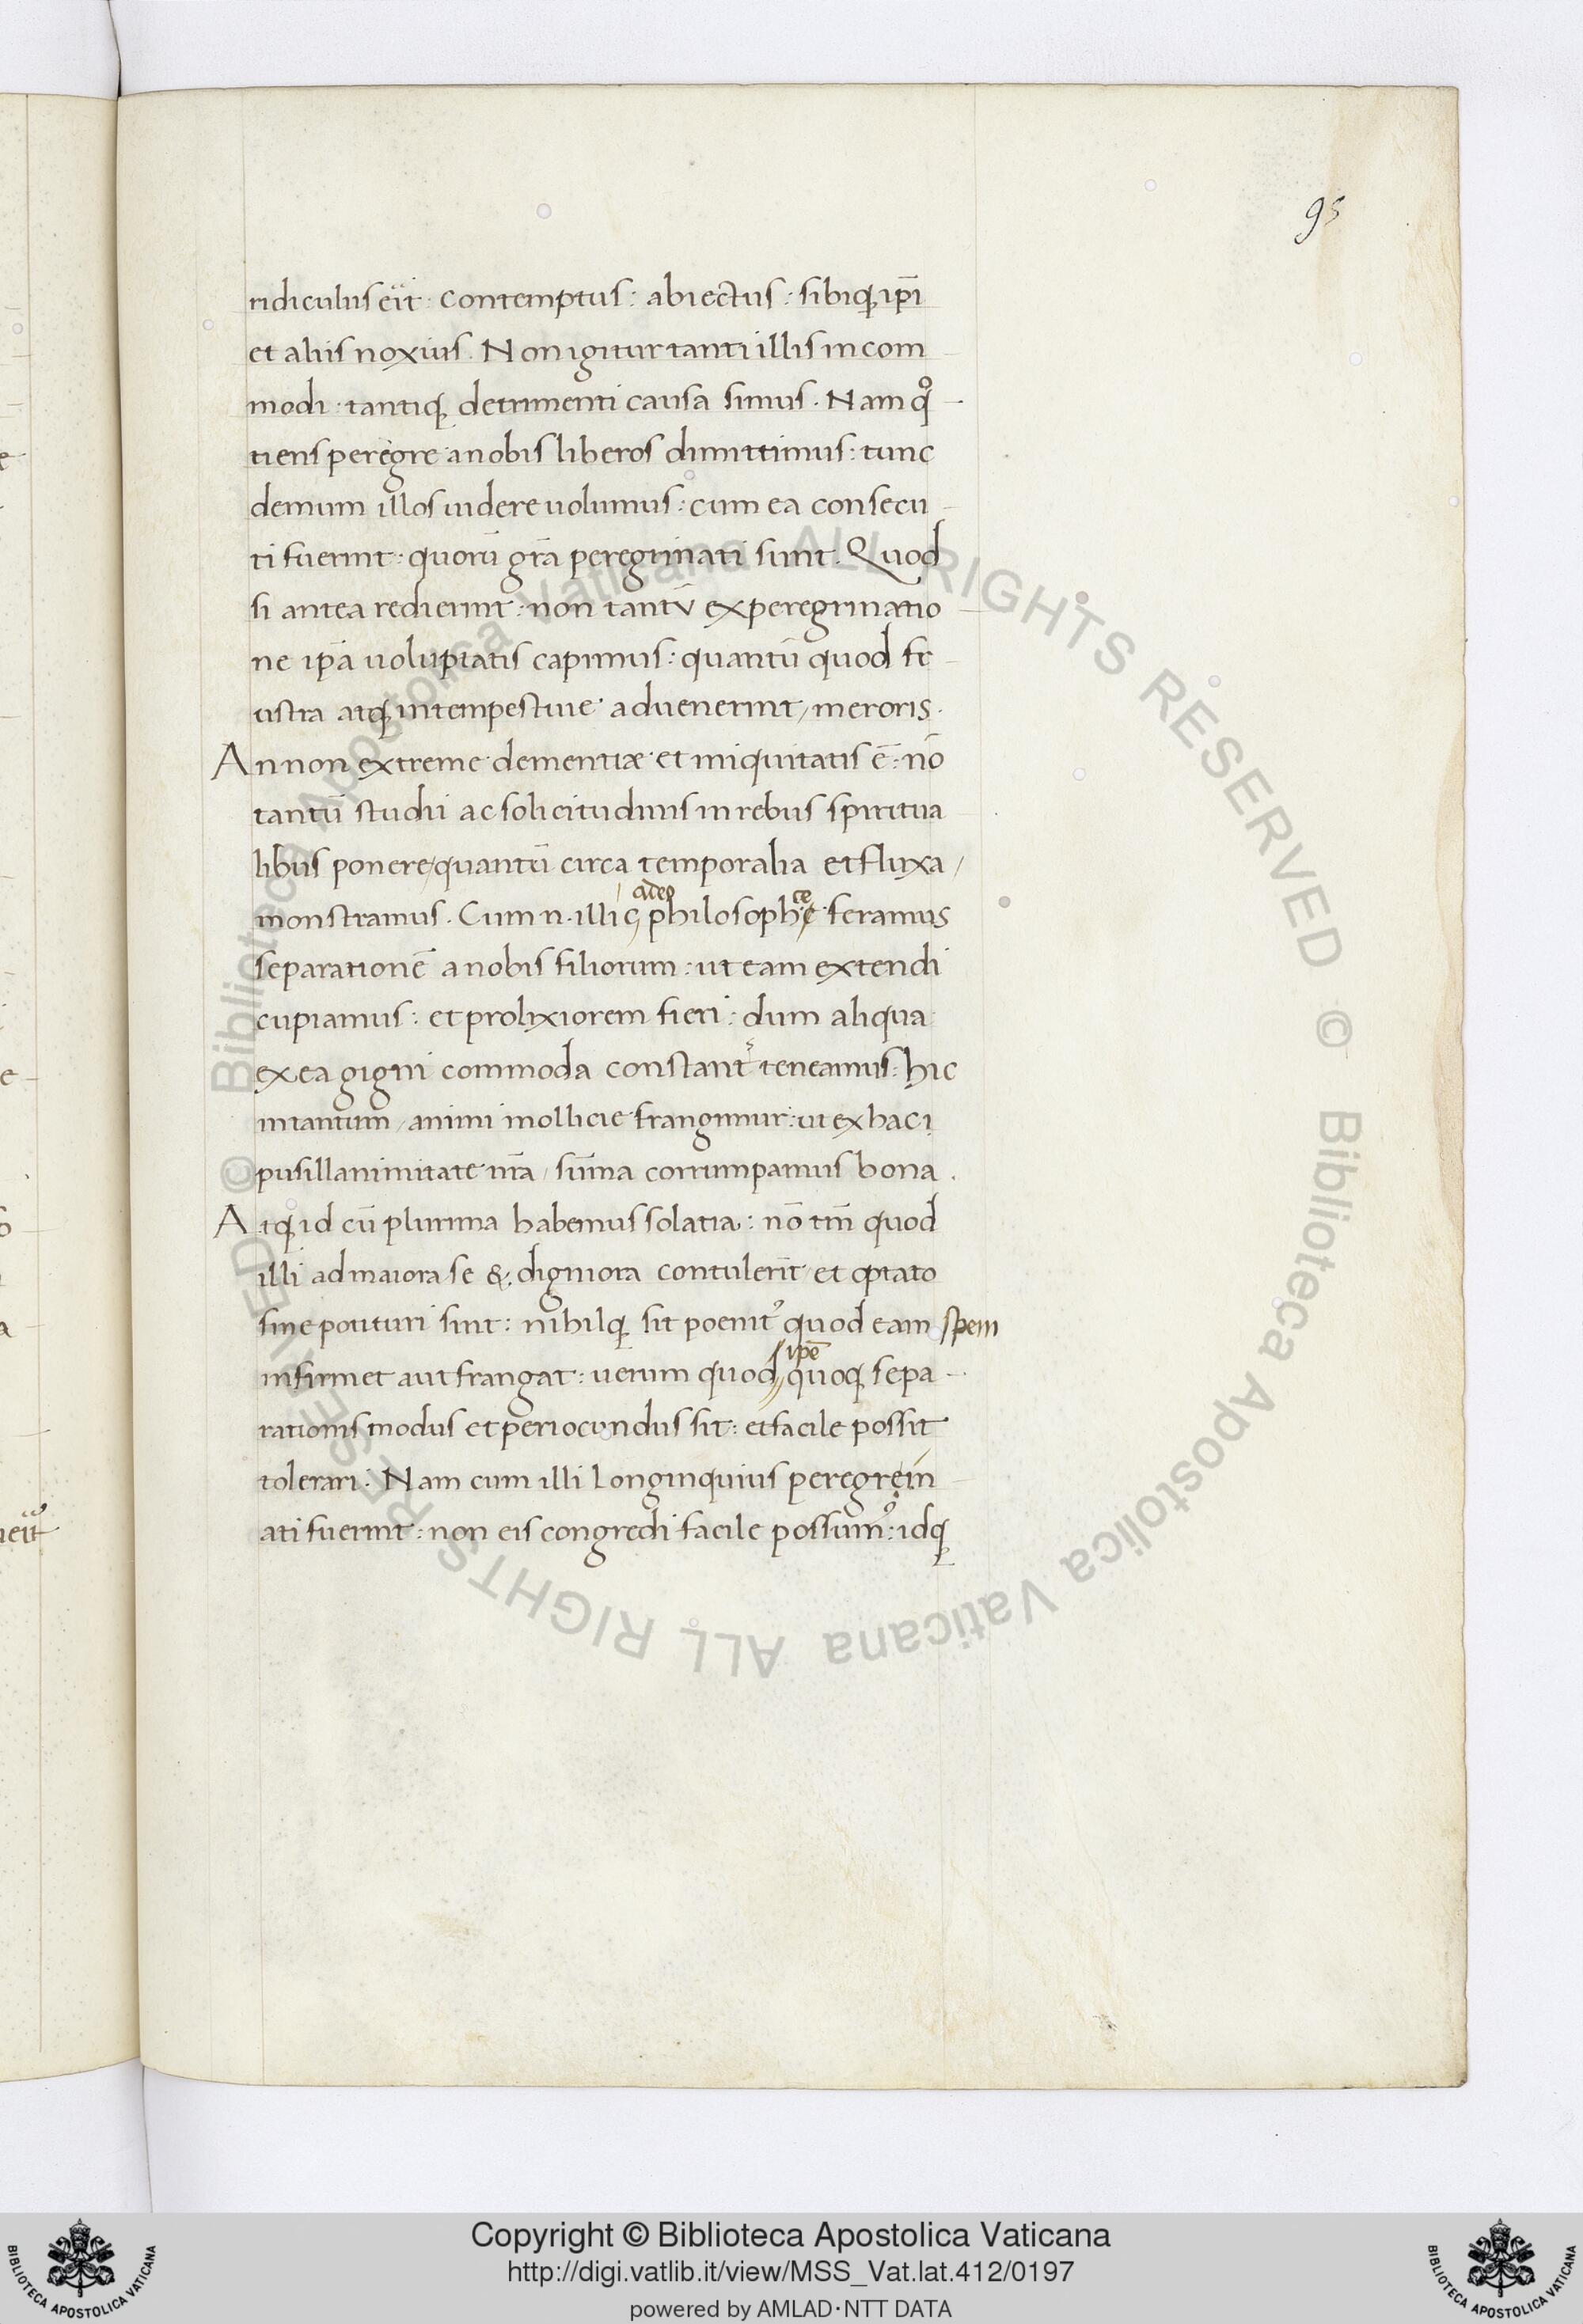 95
ridiculus erit: contemptus: abiectus: sibiq; ip̄i
et aliis noxius. Non igitur tanti illis incom
modi: tantiq; detrimenti causa simus. Nam qͦ
tiens peregre a nobis liberos dimittimus: tunc
demum illos uidere uolumus: cum ea consecu
ti fuerint: quorū gr̄a peregrinati sunt. Quod
si antea redierint: non tantū ex peregrinatio
ne ip̄a uoluptatis capimus: quantū quod fr
ustra atq; intempestiue aduenerint, meroris.
An non extreme dementiæ et iniquitatis ē: nō
tantū studii ac solicitudinis in rebus spiritua
libus ponere, quantū circa temporalia et fluxa,
adeo ce
monstramus. Cum n. illic philosophe feramus
separationē a nobis filiorum: ut eam extendi
cupiamus: et prolixiorem fieri: dum aliqua
ex ea gigni commoda constant teneamus: hic
intantum, animi mollicie frangimur: ut ex hac
pusillanimitate nr̄a, sūma corrumpamus bona.
Atq; id cū plurima habemus solatia: nō tm̄ quod
illi ad maiora se &. digniora contulerīt et optato
fine potituri sint: nihilq; sit poenitꝰ quod eam spem
ipē
infirmet aut frangat: uerum quod quoq; sepa
rationis modus et periocundus sit: et facile possit
tolerari. Nam cum illi longinquius peregrein
ati fuerint: non eis congredi facile possumꝰ: idq;
Copyright © Biblioteca Apostolica Vaticana
http://digi.vatlib.it/view/MSS_Vat.lat.412/0197
powered by AMLAD·NTT DATA
BIBLIOTECA APOSTOLICA VATICANA
BIBLIOTECA APOSTOLICA VATICANA
© Biblioteca Apostolica Vaticana ALL RIGHTS RESERVED © Biblioteca Apostolica Vaticana ALL RIGHTS RESERVED